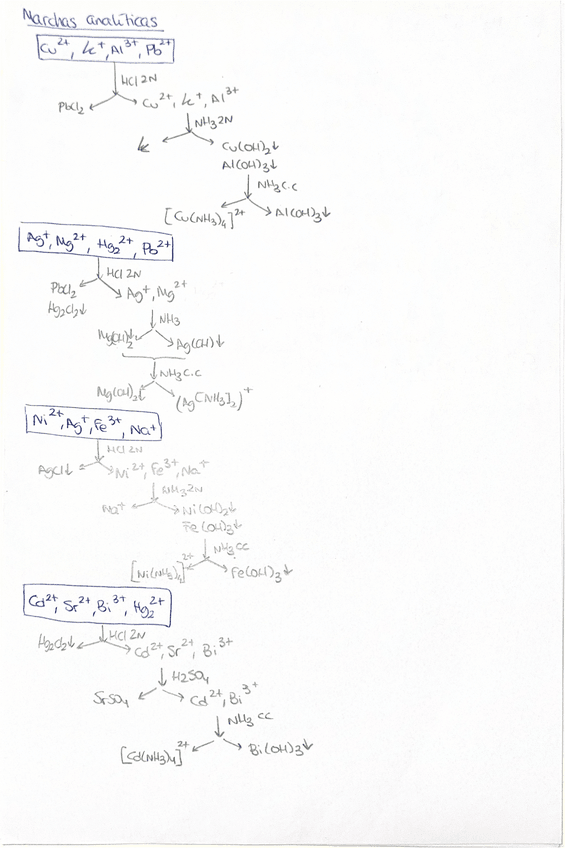 Marchas analíticas
Cu²⁺, K⁺, Al³⁺, Pb²⁺
HCl 2N
PbCl₂ Cu²⁺, K⁺, Al³⁺
NH₃ 2N
K Cu(OH)₂↓
Al(OH)₃↓
NH₃ c.c
[Cu(NH₃)₄]²⁺ Al(OH)₃↓
Ag⁺, Mg²⁺, Hg₂²⁺, Pb²⁺
HCl 2N
PbCl₂ Ag⁺, Mg²⁺
Hg₂Cl₂↓
NH₃
Mg(OH)₂↓ Ag(OH)↓
NH₃ c.c
Mg(OH)₂↓ (Ag[NH₃]₂)⁺
Ni²⁺, Ag⁺, Fe³⁺, Na⁺
HCl 2N
AgCl↓ Ni²⁺, Fe³⁺, Na⁺
NH₃ 2N
Na⁺ Ni(OH)₂↓
Fe(OH)₃↓
NH₃ cc
[Ni(NH₃)₄]²⁺ Fe(OH)₃↓
Cd²⁺, Sr²⁺, Bi³⁺, Hg₂²⁺
HCl 2N
Hg₂Cl₂↓ Cd²⁺, Sr²⁺, Bi³⁺
H₂SO₄
SrSO₄ Cd²⁺, Bi³⁺
NH₃ cc
[Cd(NH₃)₄]²⁺ Bi(OH)₃↓